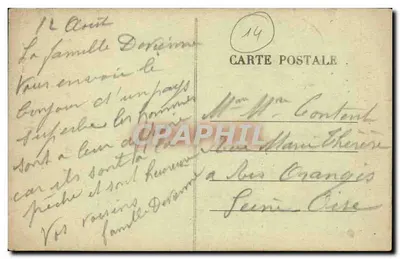 12 Août
La famille Davienne
Vous envoie le
bonjour d'un pays
superbe les hommes
sont à leur
car ils sont à la
pêche et sont heureux
Vos voisins
famille Davienne
14
CARTE POSTALE
Mr Mme Content
Rue Marie Thérèse
a Ris Orangis
Seine Oise
CPAPHIL